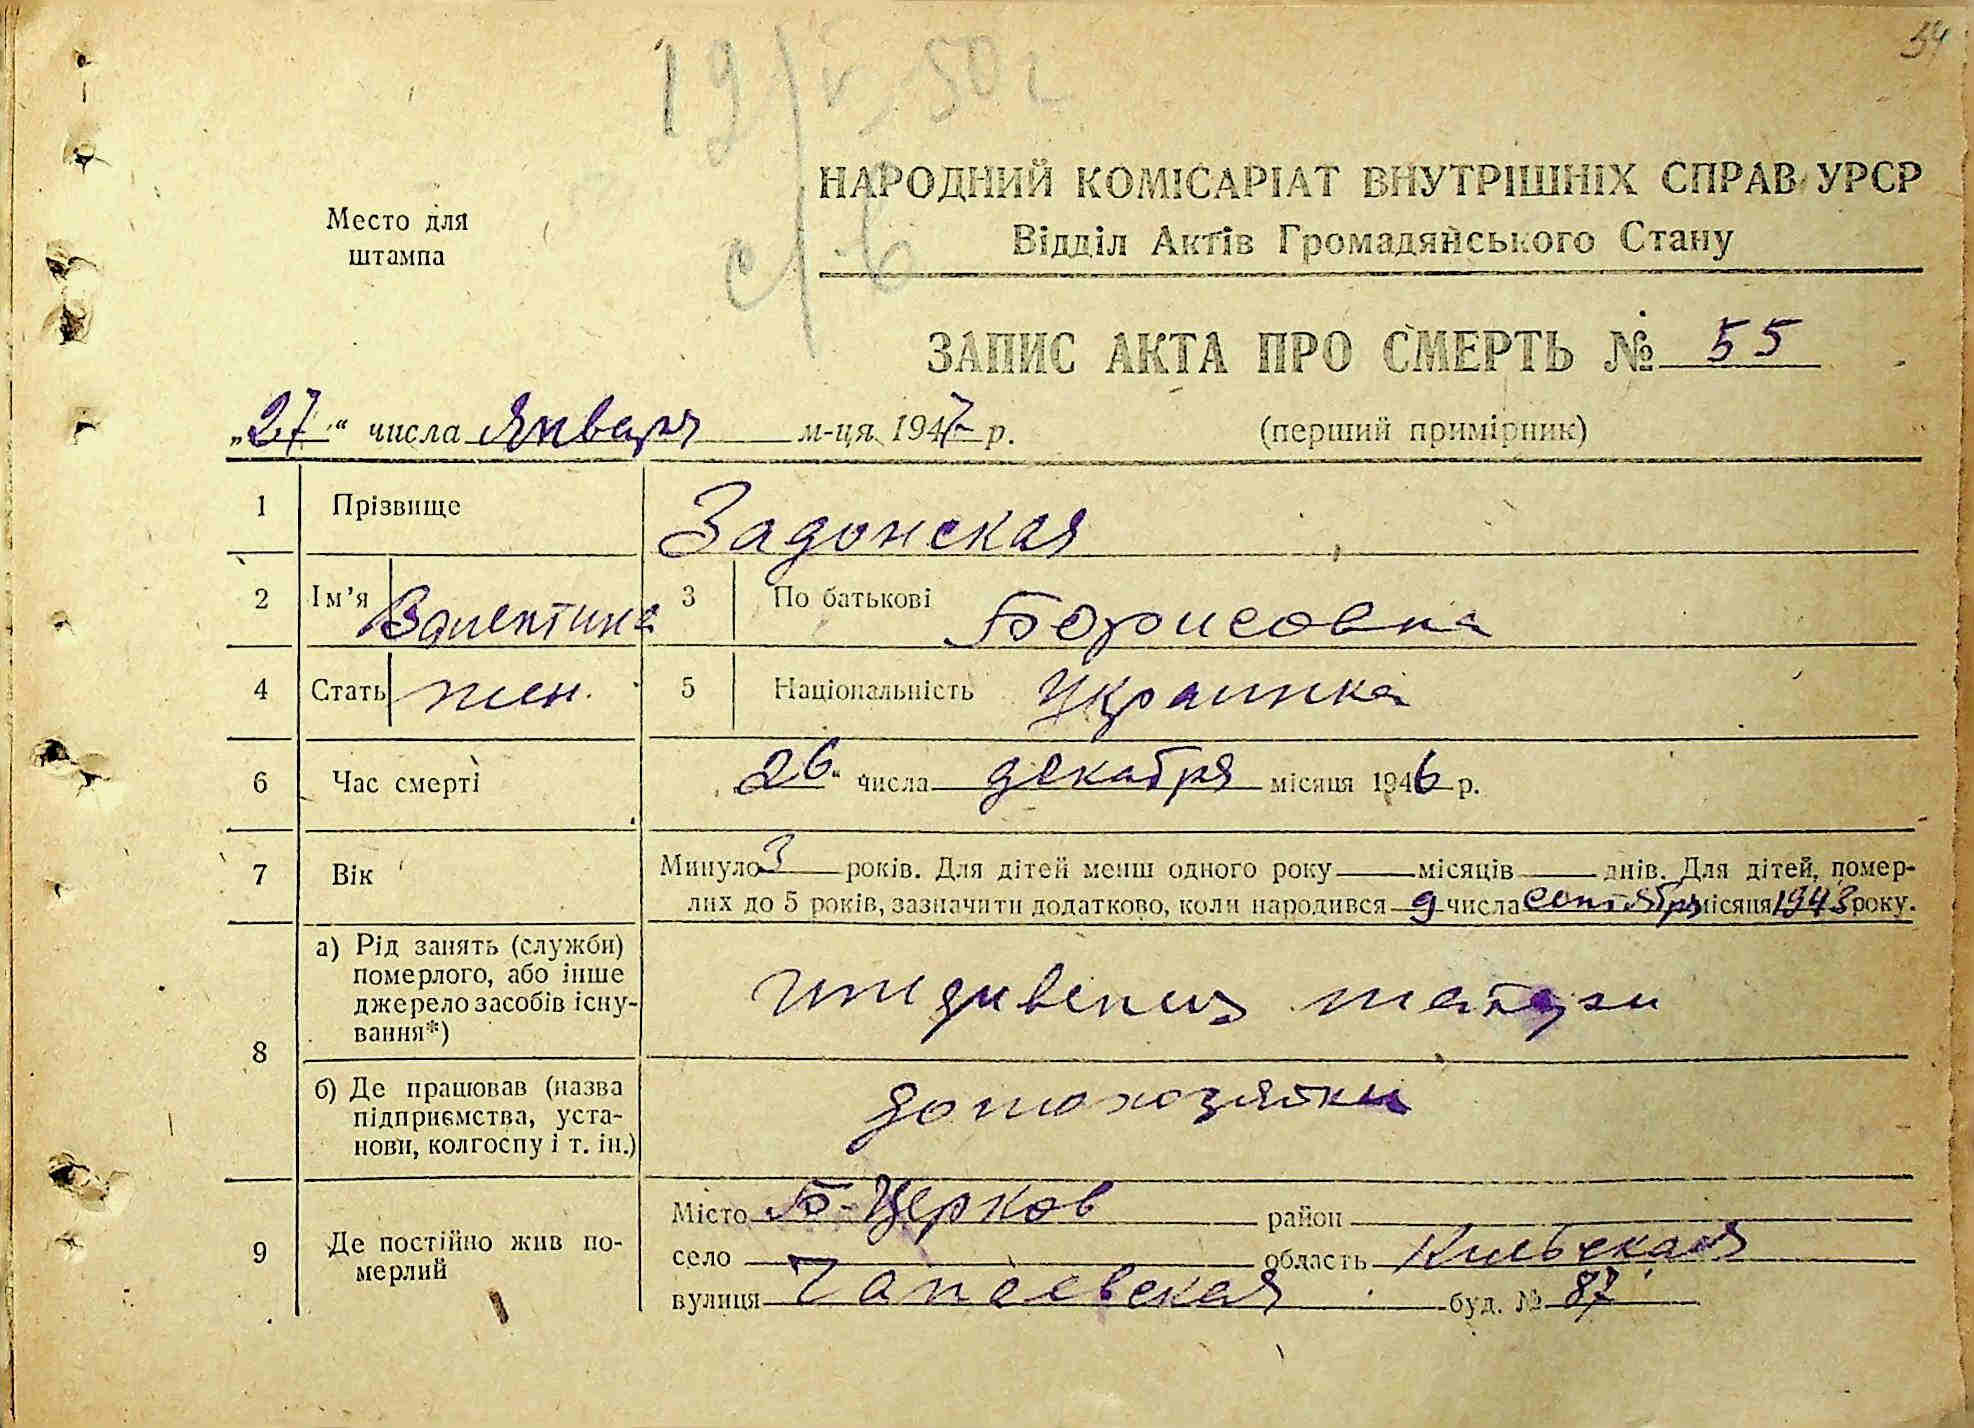 54
19/V-50 г
с/в
Место для
штампа
НАРОДНИЙ КОМІСАРІАТ ВНУТРІШНІХ СПРАВ УРСР
Відділ Актів Громадянського Стану
ЗАПИС АКТА ПРО СМЕРТЬ № 55
„27“ числа Января м-ця 1947 р. (перший примірник)
1 Прізвище Задонская
2 Ім’я Валентина 3 По батькові Борисовна
4 Стать жен. 5 Національність Украинка
6 Час смерті 26 числа декабря місяця 1946 р.
7 Вік Минуло 3 років. Для дітей менш одного року місяців днів. Для дітей, помер-
лих до 5 років, зазначити додатково, коли народився 9 числа сентября місяця 1943 року.
8 а) Рід занять (служби)
померлого, або інше
джерело засобів існу-
вання*) иждивения матери
б) Де працював (назва
підприємства, уста-
нови, колгоспу і т. ін.) домохозяйки
9 Де постійно жив по-
мерлий
Місто Б-Церков район
село область Киевская
вулиця Чапаевская буд. № 87